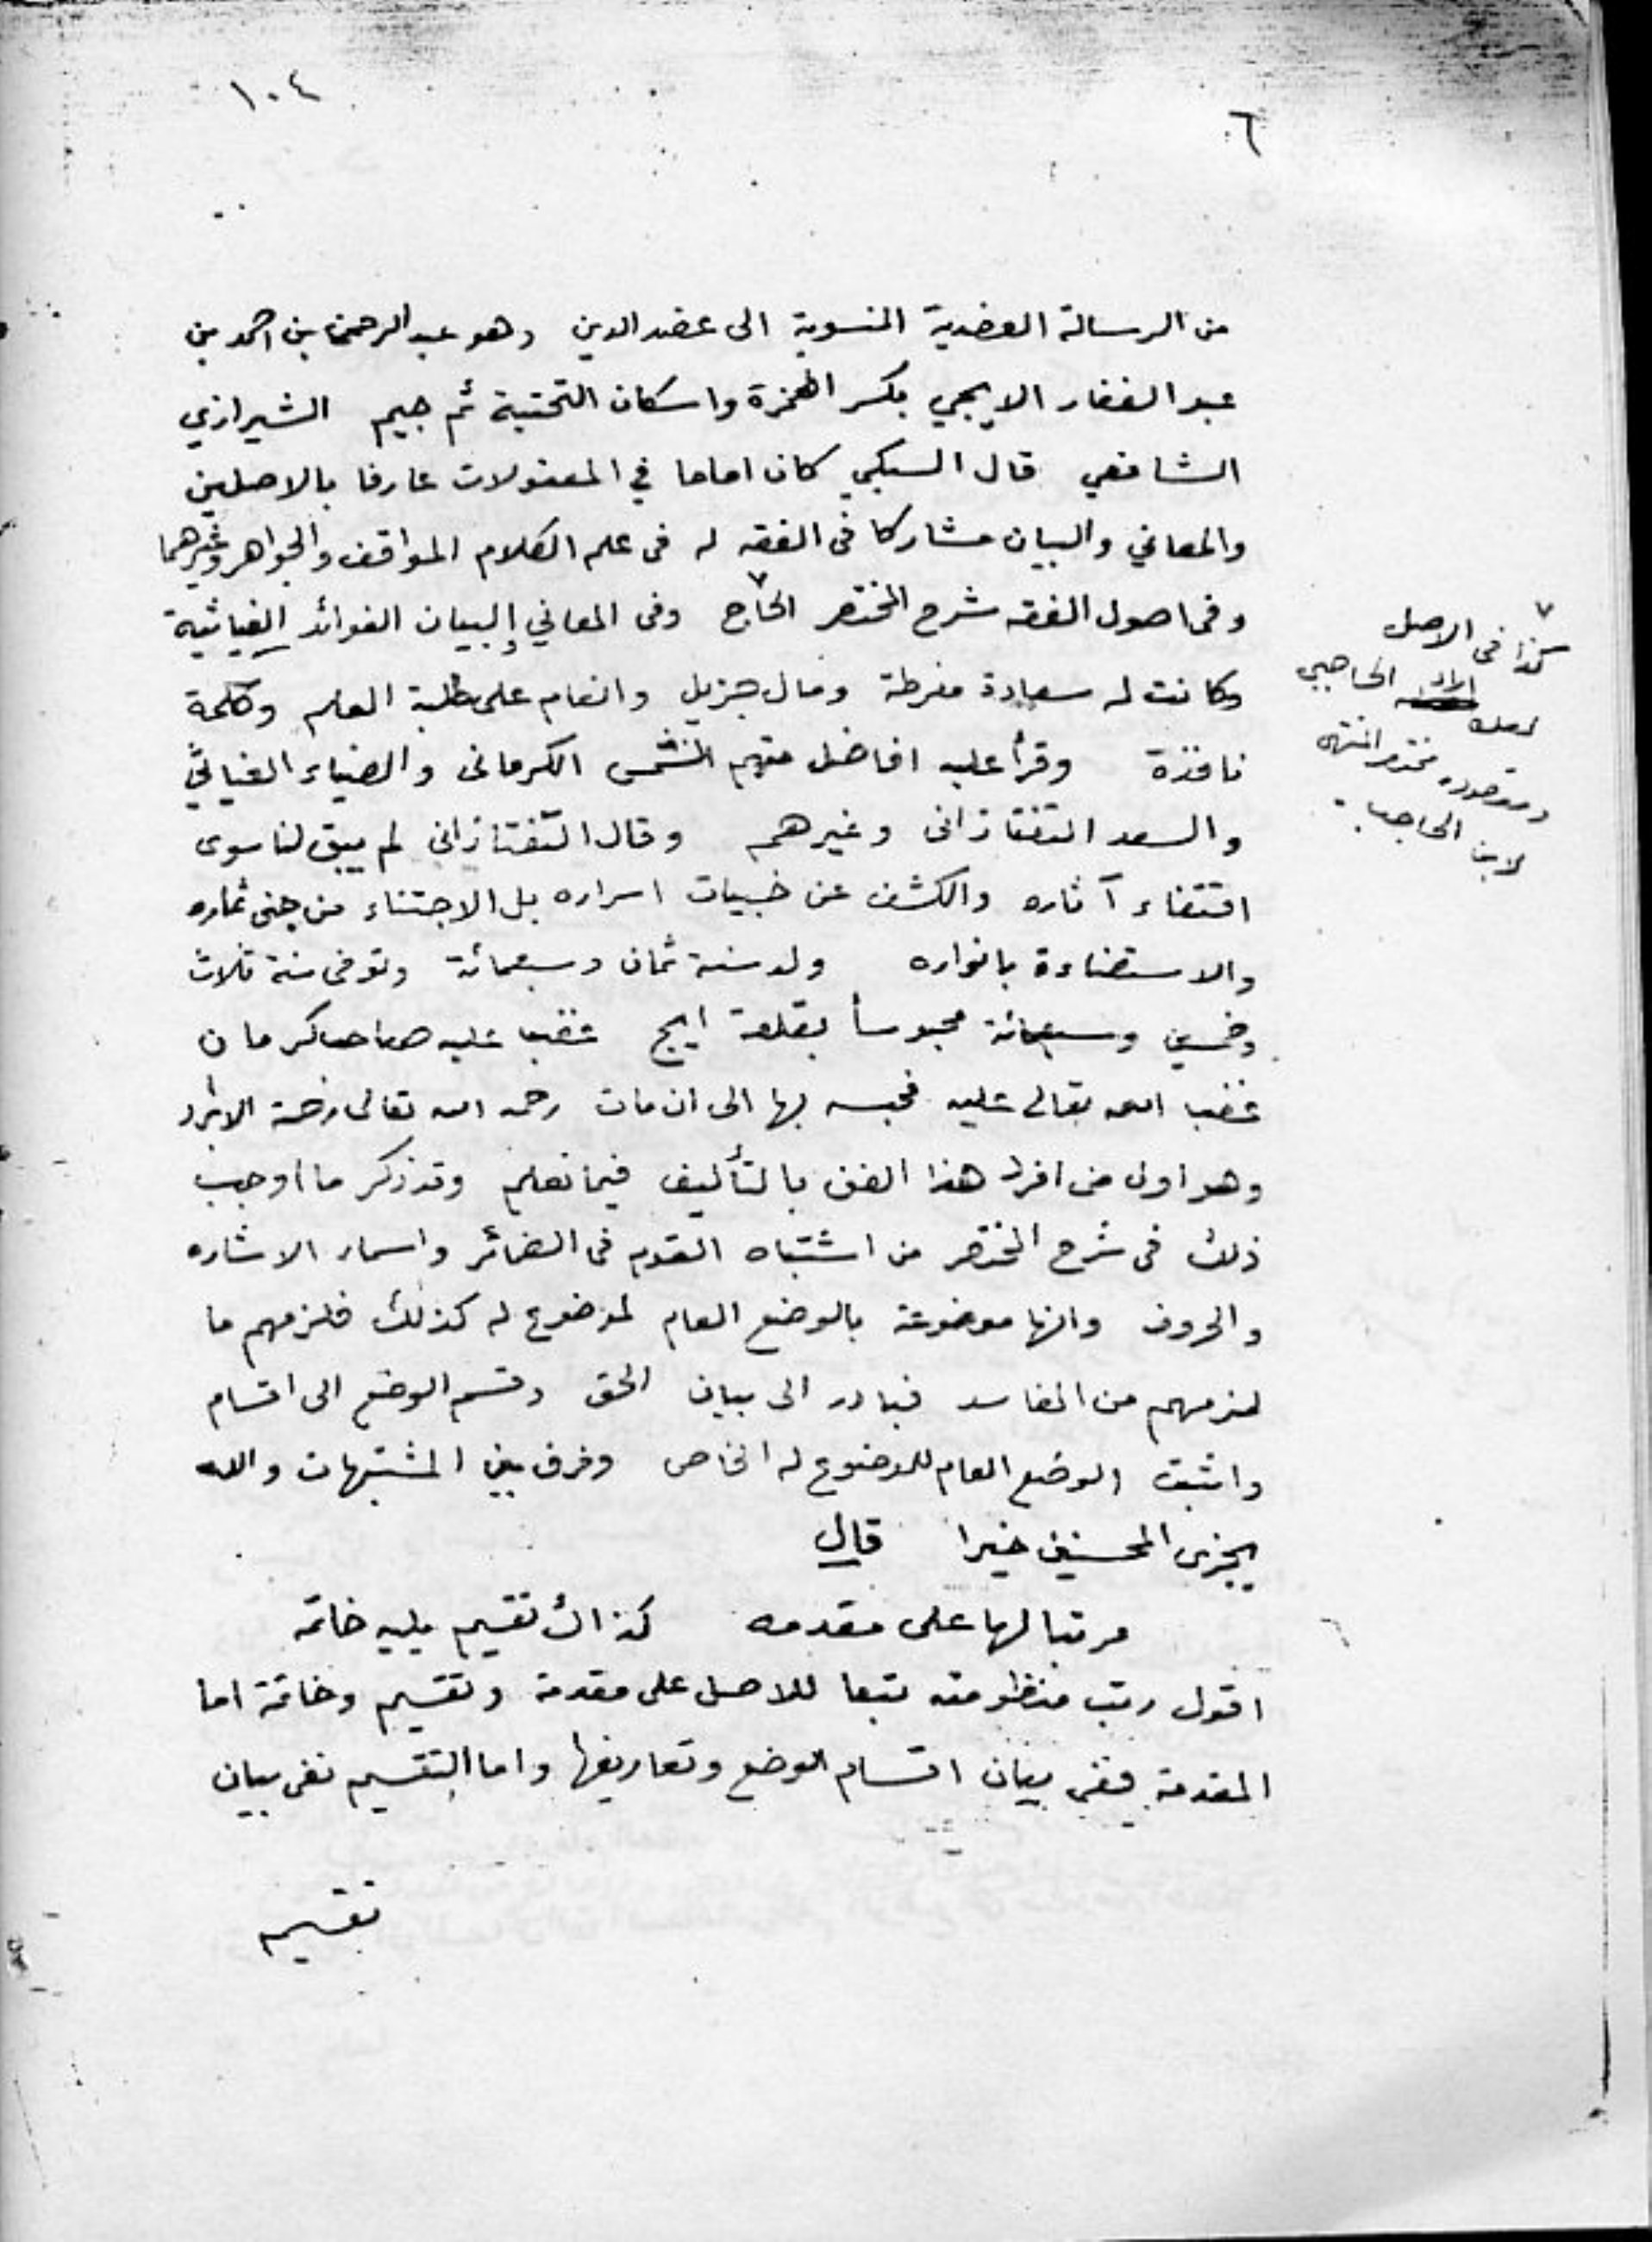 ١٠٤
٦
من الرسالة العضدية المنسوبة الى عضد الدين وهو عبد الرحمن بن احمد بن
عبد الغفار الايجي بكسر الهمزة واسكان التحتية ثم جيم الشيرازي
الشافعي قال السبكي كان اماما في المعقولات عارفا بالاصلين
والمعاني والبيان مشاركا فى الفقه له فى علم الكلام المواقف والجواهر وغيرهما
وفى اصول الفقه شرح المختصر الحاج وفى المعاني والبيان الفوائد الغياثية
وكانت له سعادة مفرطة ومال جزيل وانعام على طلبة العلم وكلمة
نافذة وقرأ عليه افاضل منهم الشمس الكرمانى والضياء العفيفي
والسعد التفتازانى وغيرهم وقال التفتازانى لم يبق لنا سوى
اقتفاء آثاره والكشف عن خبيات اسراره بل الاجتناء من جنى ثماره
والاستضاءة بانواره ولد سنة ثمان وسبعمائة وتوفى سنة ثلاث
وخمسين وسبعمائة محبوساً بقلعة ايج غضب عليه صاحب كرمان
غضب الله تعالى عليه فحبسه بها الى ان مات رحمه الله تعالى رحمة الابرار
وهو اول من افرد هذا الفن بالتأليف فيما نعلم وقد ذكر ما اوجب
ذلك فى شرح المختصر من اشتباه القوم فى الضمائر واسماء الاشاره
والحروف وانها موضوعة بالوضع العام لموضوع له كذلك فلزمهم ما
لزمهم من المفاسد فبادر الى بيان الحق وقسم الوضع الى اقسام
واثبت الوضع العام للموضوع له الخاص وفرق بين المشتبهات والله
يجزى المحسنين خيرا قال
مرتبا لها على مقدمه كذاك تقسيم يليه خاتمه
اقول رتب منظومته تبعا للاصل على مقدمة وتقسيم وخاتمة اما
المقدمة ففى بيان اقسام الوضع وتعاريفها واما التقسيم ففى بيان
تقسيم
٧
كذا فى الاصل
لعله اراد الحاجبي
ومقصوده مختصر المنتهى
لابن الحاجب.